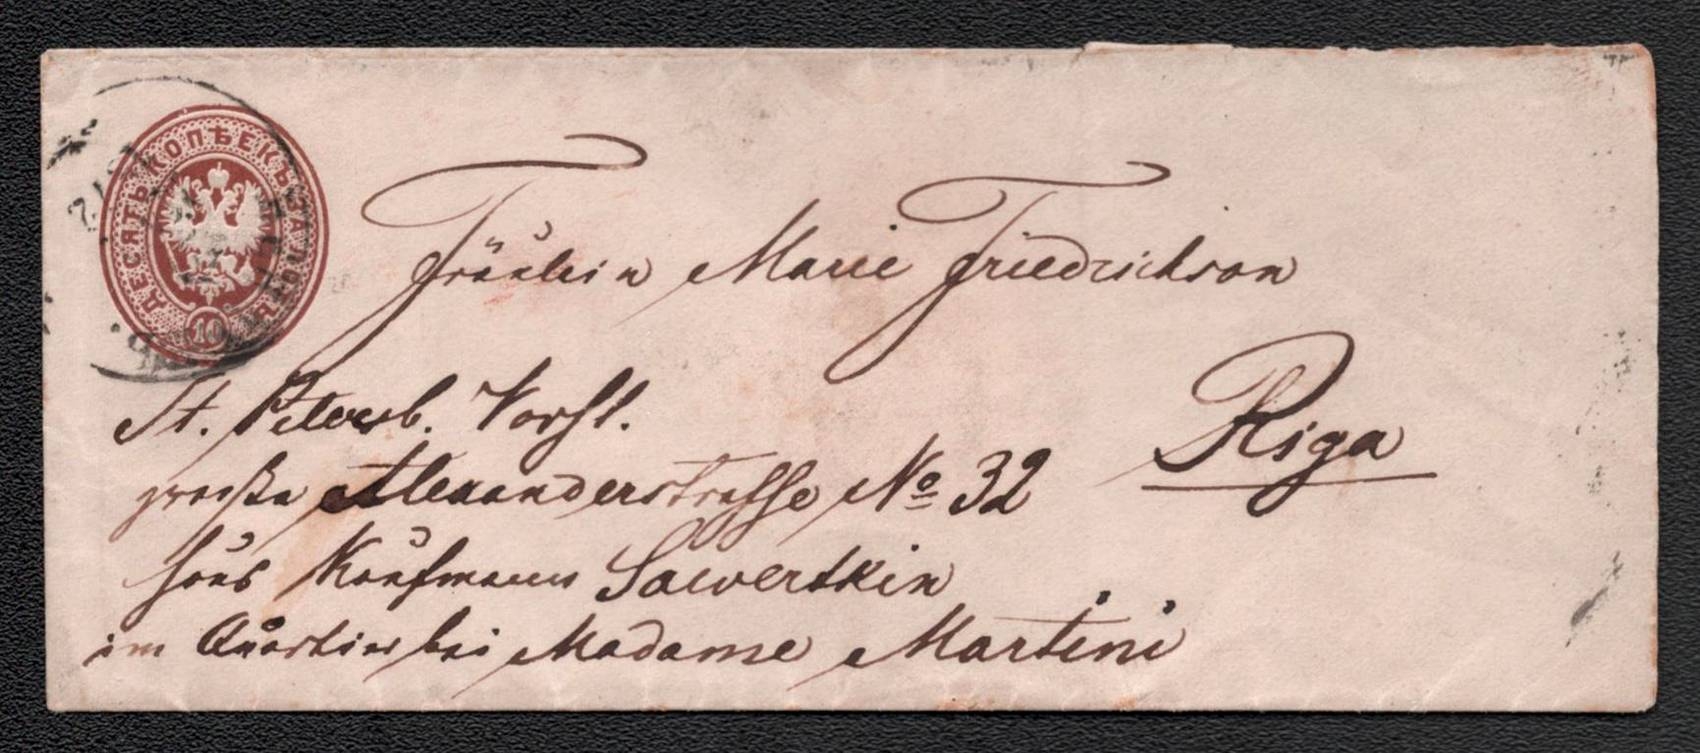 ДЕСЯТЬ КОПѢЕКЪ ЗА ЛОТЪ
10
Fräulein Marie Friedrichson
Riga
St. Petersb. Vorst.
große Alexanderstrasse No 32
Haus Kaufmann Sawertkin
im Quartier bei Madame Martini